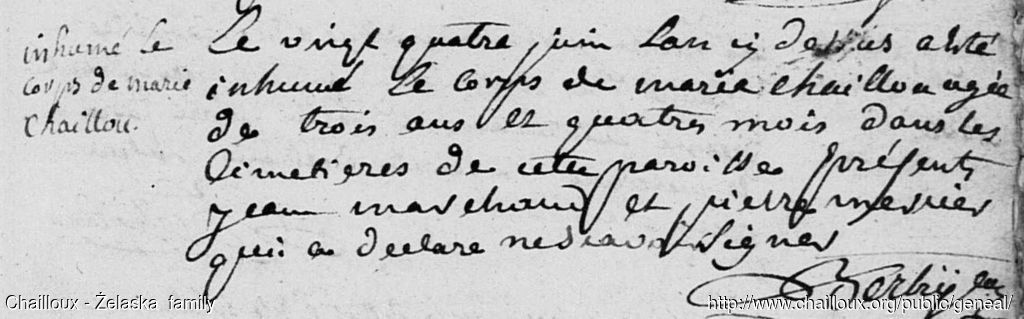 inhumé le
corps de marie
Chaillou.
Le vingt quatre juin lan cy dessus a esté
inhumé le corps de marie chaillou agée
de trois ans et quatres mois dans les
Cimetieres de cette paroisse présents
jean marchand et pierre mercier
qui a declare ne scavoir signer
Chailloux - Żelaska family
http://www.chailloux.org/public/geneal/